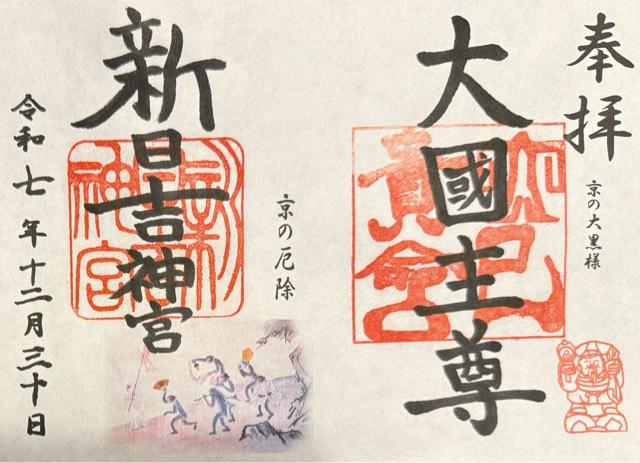 奉拝
京の大黒様
大國主尊
京の厄除
新日吉神宮
令和七年十二月三十日